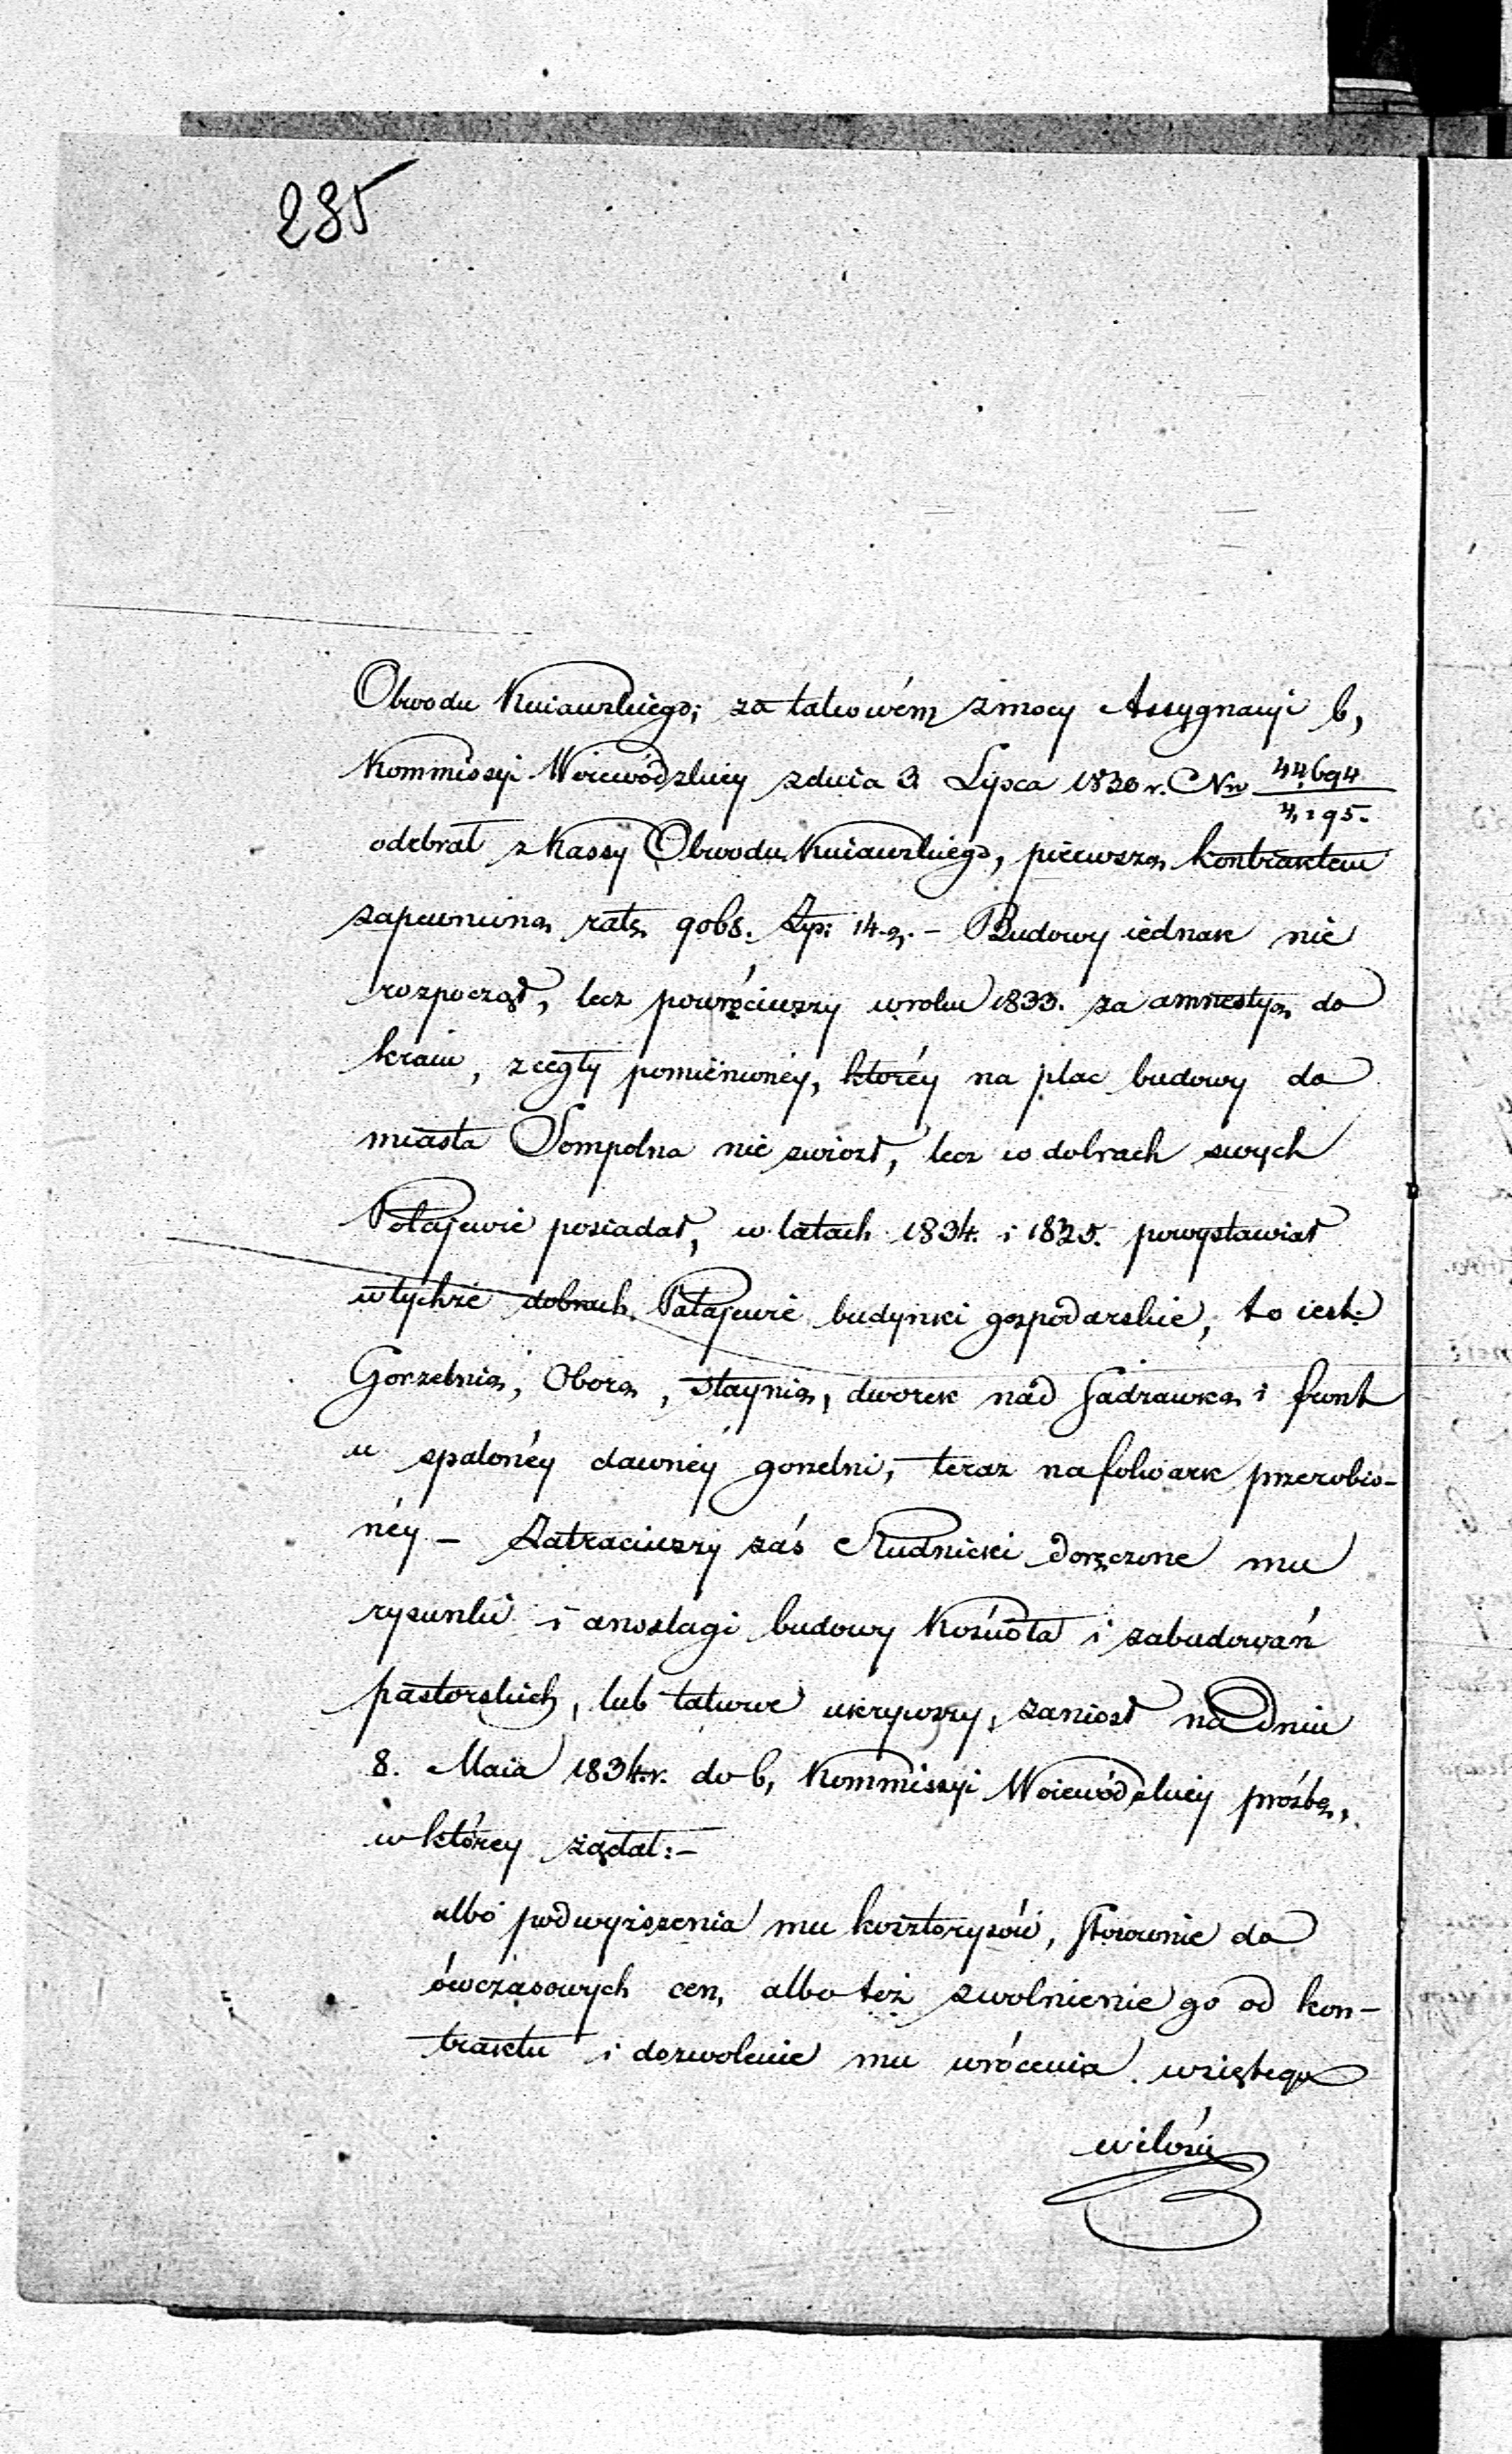 285
Obwodu Kuiawskiego; za takowém zmocy Assygnacyi b,
Kommissyi Woiewódzkiey zdnia 3 Lipca 1830 r. Nro 44694/4,295.
odebrał z Kassy Obwodu Kuiawskiego, pierwszą kontraktem
zapewnioną ratę 9068. Złp: 14. g. – Budowy iednak nie
rozpoczął, lecz powróciwszy wroku 1833. za amnestyą do
kraiu, z cegły pomienionéy, któréy na plac budowy do
miasta Sompolna nie zwiozł, lecz w dobrach swych
Połajewie posiadał, w latach 1834. i 1835. powystawiał
wtychże dobrach Połajewie budynki gospodarskie, to iest:
Gorzelnią, Oborą, staynią, dworek nad Sadzawką i front
u spalonéy dawnéy gorzelni, teraz na folwark przerobio-
néy – Zatraciwszy zaś Rudnicki doręczone mu
rysunki i anszlagi budowy Kościoła i zabudowań
pastorskich, lub takowe ukrywszy, zaniosł na dniu
8. Maia 1834. r. do b, Kommissyi Woiewódzkiey prośbę,
w którey żądał: –
albo podwyższenia mu kosztorysów, stosownie do
ówczasowych cen, albo też zwolnienie go od kon-
traktu i dozwolenie mu wrócenia wziętego
wilości